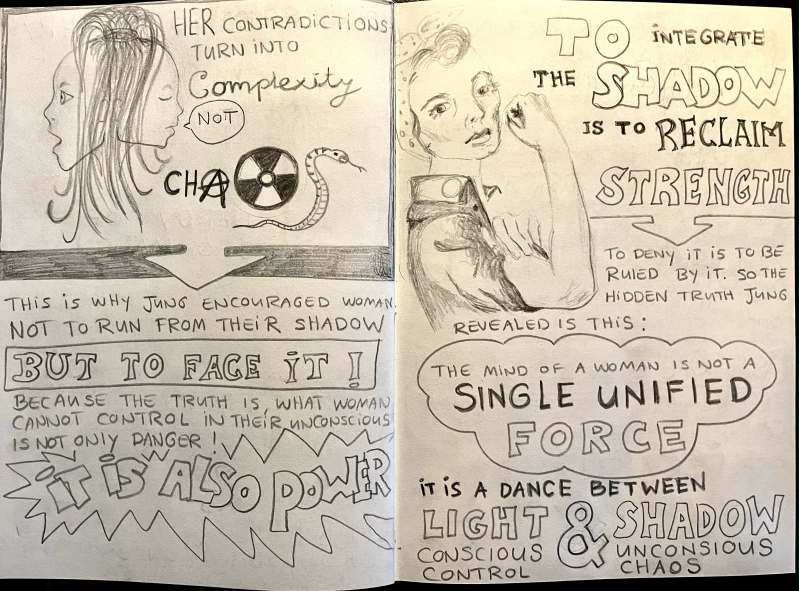 HER CONTRADICTIONS
TURN INTO
Complexity
NOT
CHAOS
THIS IS WHY JUNG ENCOURAGED WOMAN
NOT TO RUN FROM THEIR SHADOW
BUT TO FACE IT!
BECAUSE THE TRUTH IS, WHAT WOMAN
CANNOT CONTROL IN THEIR UNCONSCIOUS
IS NOT ONLY DANGER!
IT IS ALSO POWER
TO INTEGRATE
THE SHADOW
IS TO RECLAIM
STRENGTH
TO DENY IT IS TO BE
RULED BY IT. SO THE
HIDDEN TRUTH JUNG
REVEALED IS THIS:
THE MIND OF A WOMAN IS NOT A
SINGLE UNIFIED
FORCE
IT IS A DANCE BETWEEN
LIGHT & SHADOW
CONSCIOUS UNCONSIOUS
CONTROL CHAOS